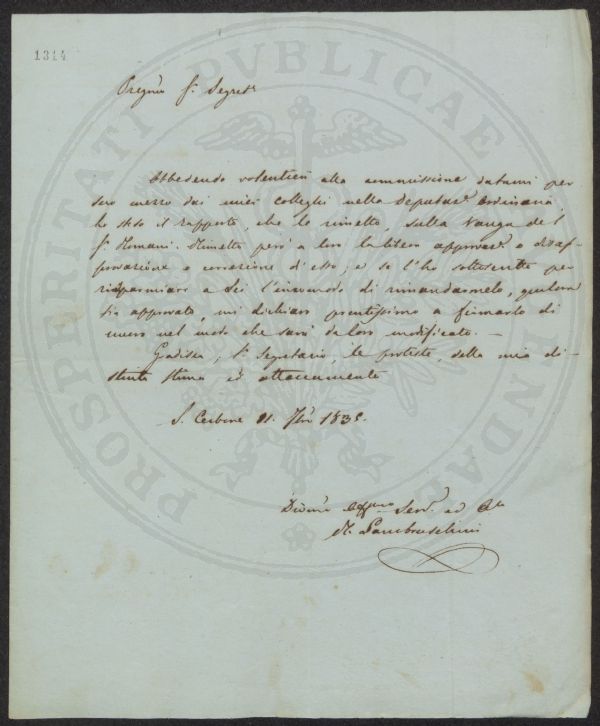 1314
PROSPERITATI PVBLICAE AVGENDAE
Pregmo Sr. Segreto
Obbedendo volentieri alla commissione datami per
suo mezzo dai miei colleghi nella Deputazne ordinaria
ho steso il rapporto, che le rimetto, sulla Vanga del
Sr. Rimetto però a loro la libera approvazne o disap-
provazione o correzione di esso; e se l'ho sottoscritto per
risparmiare a Lei l'incomodo di rimandarmelo, qualora
sia approvato, mi dichiaro prontissimo a firmarlo di
nuovo nel modo che sarà da loro modificato. —
Gradisca, Sr. Segretario, le proteste della mia di-
stinta stima ed attaccamento
S. Cerbone 1835.
Devmo Affmo Serv. ed
R. Lambruschini